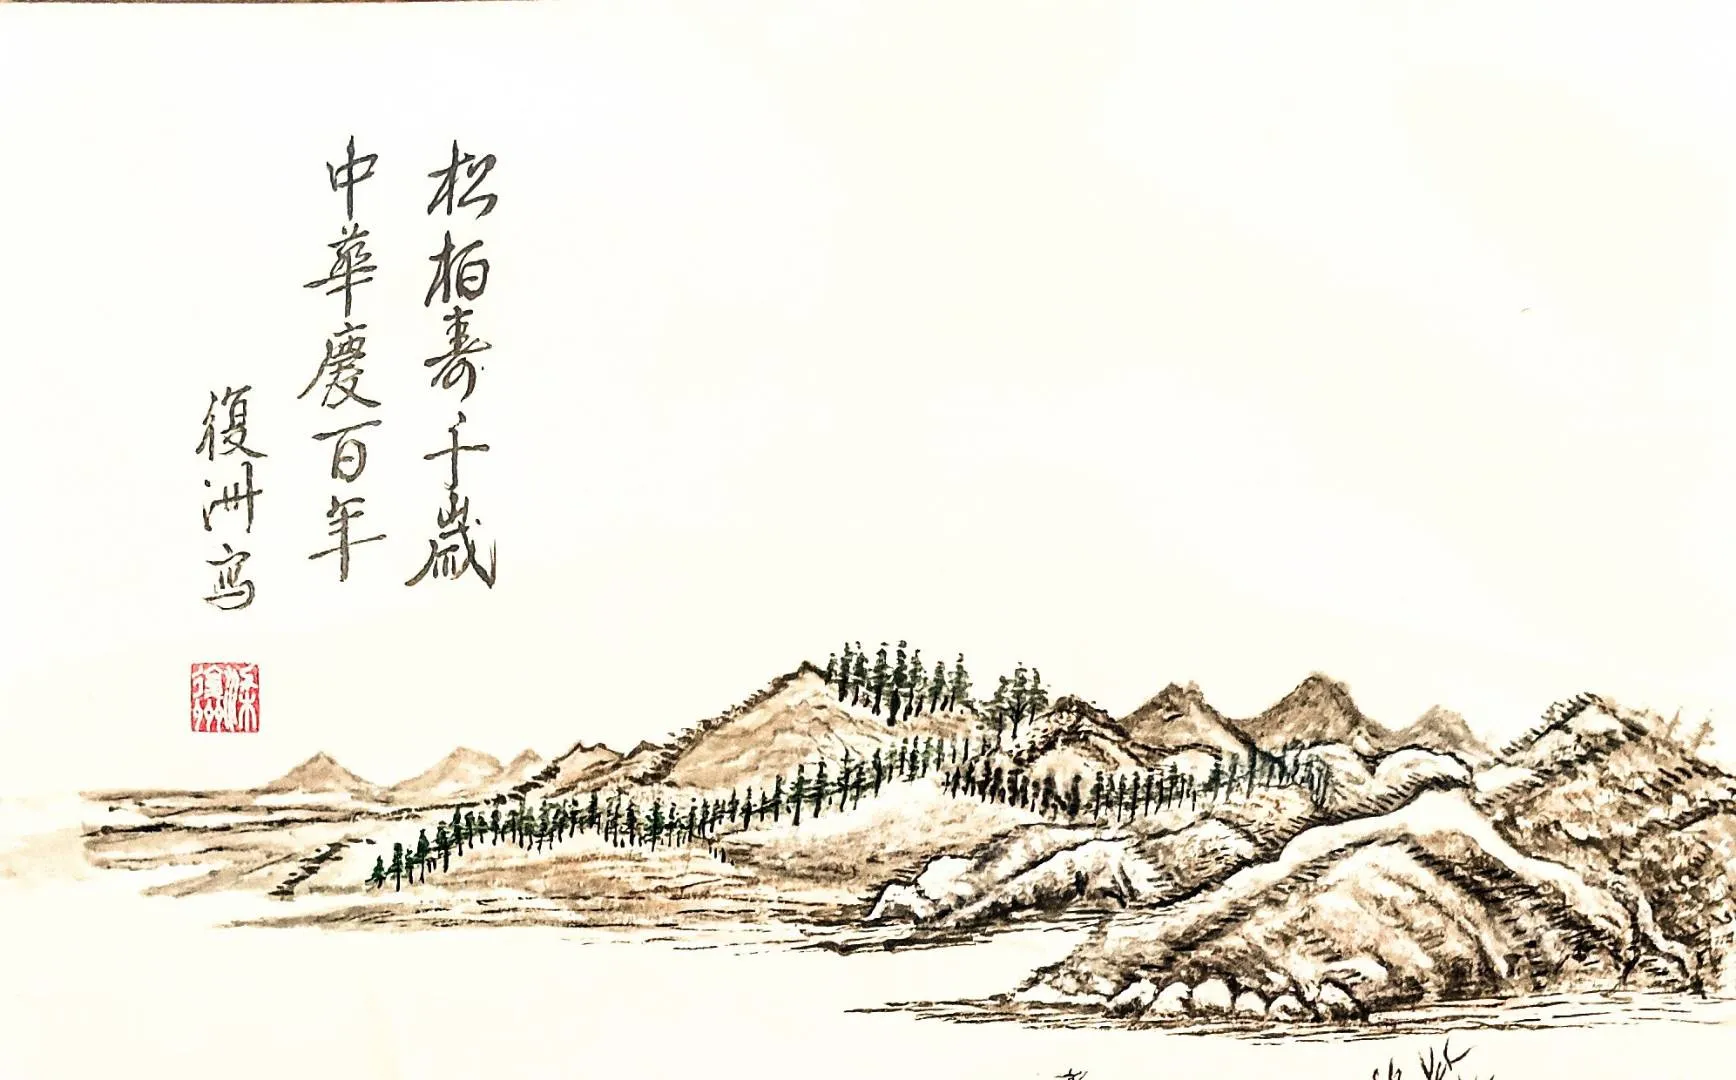 松柏寿千歲
中華慶百年
復洲写